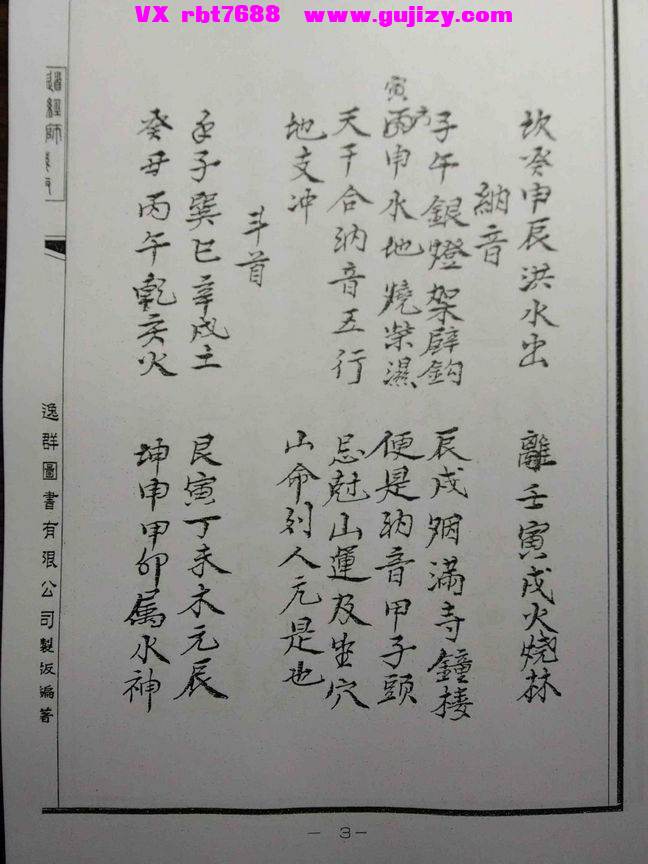 VX rbt7688 www.gujizy.com
坎癸申辰洪水出 離壬寅戌火燒林
納音
子午銀燈架壁鈎 辰戌烟滿寺鐘樓
寅方
丙申水地燒柴濕 便是納音甲子頭
天干合納音五行 忌尅山運及坐穴
地支冲 山命列人元是也
斗首
壬子巽巳辛戌土 艮寅丁未木元辰
癸丑丙午乾亥火 坤申甲卯属水神
逸群圖書有限公司製版編著
－3－